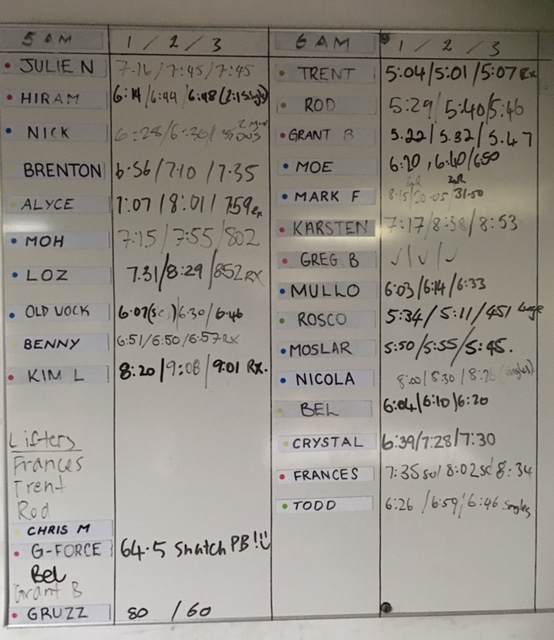 5 AM 1 / 2 / 3
JULIE N 7:16 / 7:45 / 7:45
HIRAM 6:14 / 6:44 / 6:48
NICK 6:28 / 6:30 /
BRENTON 6:56 / 7:10 / 7:35
ALYCE 7:07 / 8:01 / 759 Rx
MOH 7:15 / 7:55 / 802
LOZ 7.31 / 8:29 / 852 RX
OLD VOCK 6:07 / 6:30 / 6:46
BENNY 6:51 / 6:50 / 6:57 RX
KIM L 8:20 / 9:08 / 9:01 Rx.
Lifters
Frances
Trent
Rod
CHRIS M
G-FORCE 64.5 Snatch PB!!
Bel
Grant B
GRUZZ 80 / 60
6 AM 1 / 2 / 3
TRENT 5:04 / 5:01 / 5:07 Rx
ROD 5:29 / 5:40 / 5:46
GRANT B 5.22 / 5.32 / 5.47
MOE 6:20 , 6:40 / 6:50
MARK F 8:15 / 20:05 31:50
KARSTEN 7:17 / 8:38 / 8:53
GREG B ✓ / ✓ / ✓
MULLO 6:03 / 6:14 / 6:33
ROSCO 5:34 / 5:11 / 451
MOSLAR 5:50 / 5:55 / 5:45.
NICOLA 8:00 / 8:30 / 8:26 (singles)
BEL 6:04 / 6:10 / 6:20
CRYSTAL 6:39 / 7:28 / 7:30
FRANCES 7:35 sc / 8:02 sc / 8:34
TODD 6:26 / 6:59 / 6:46 singles